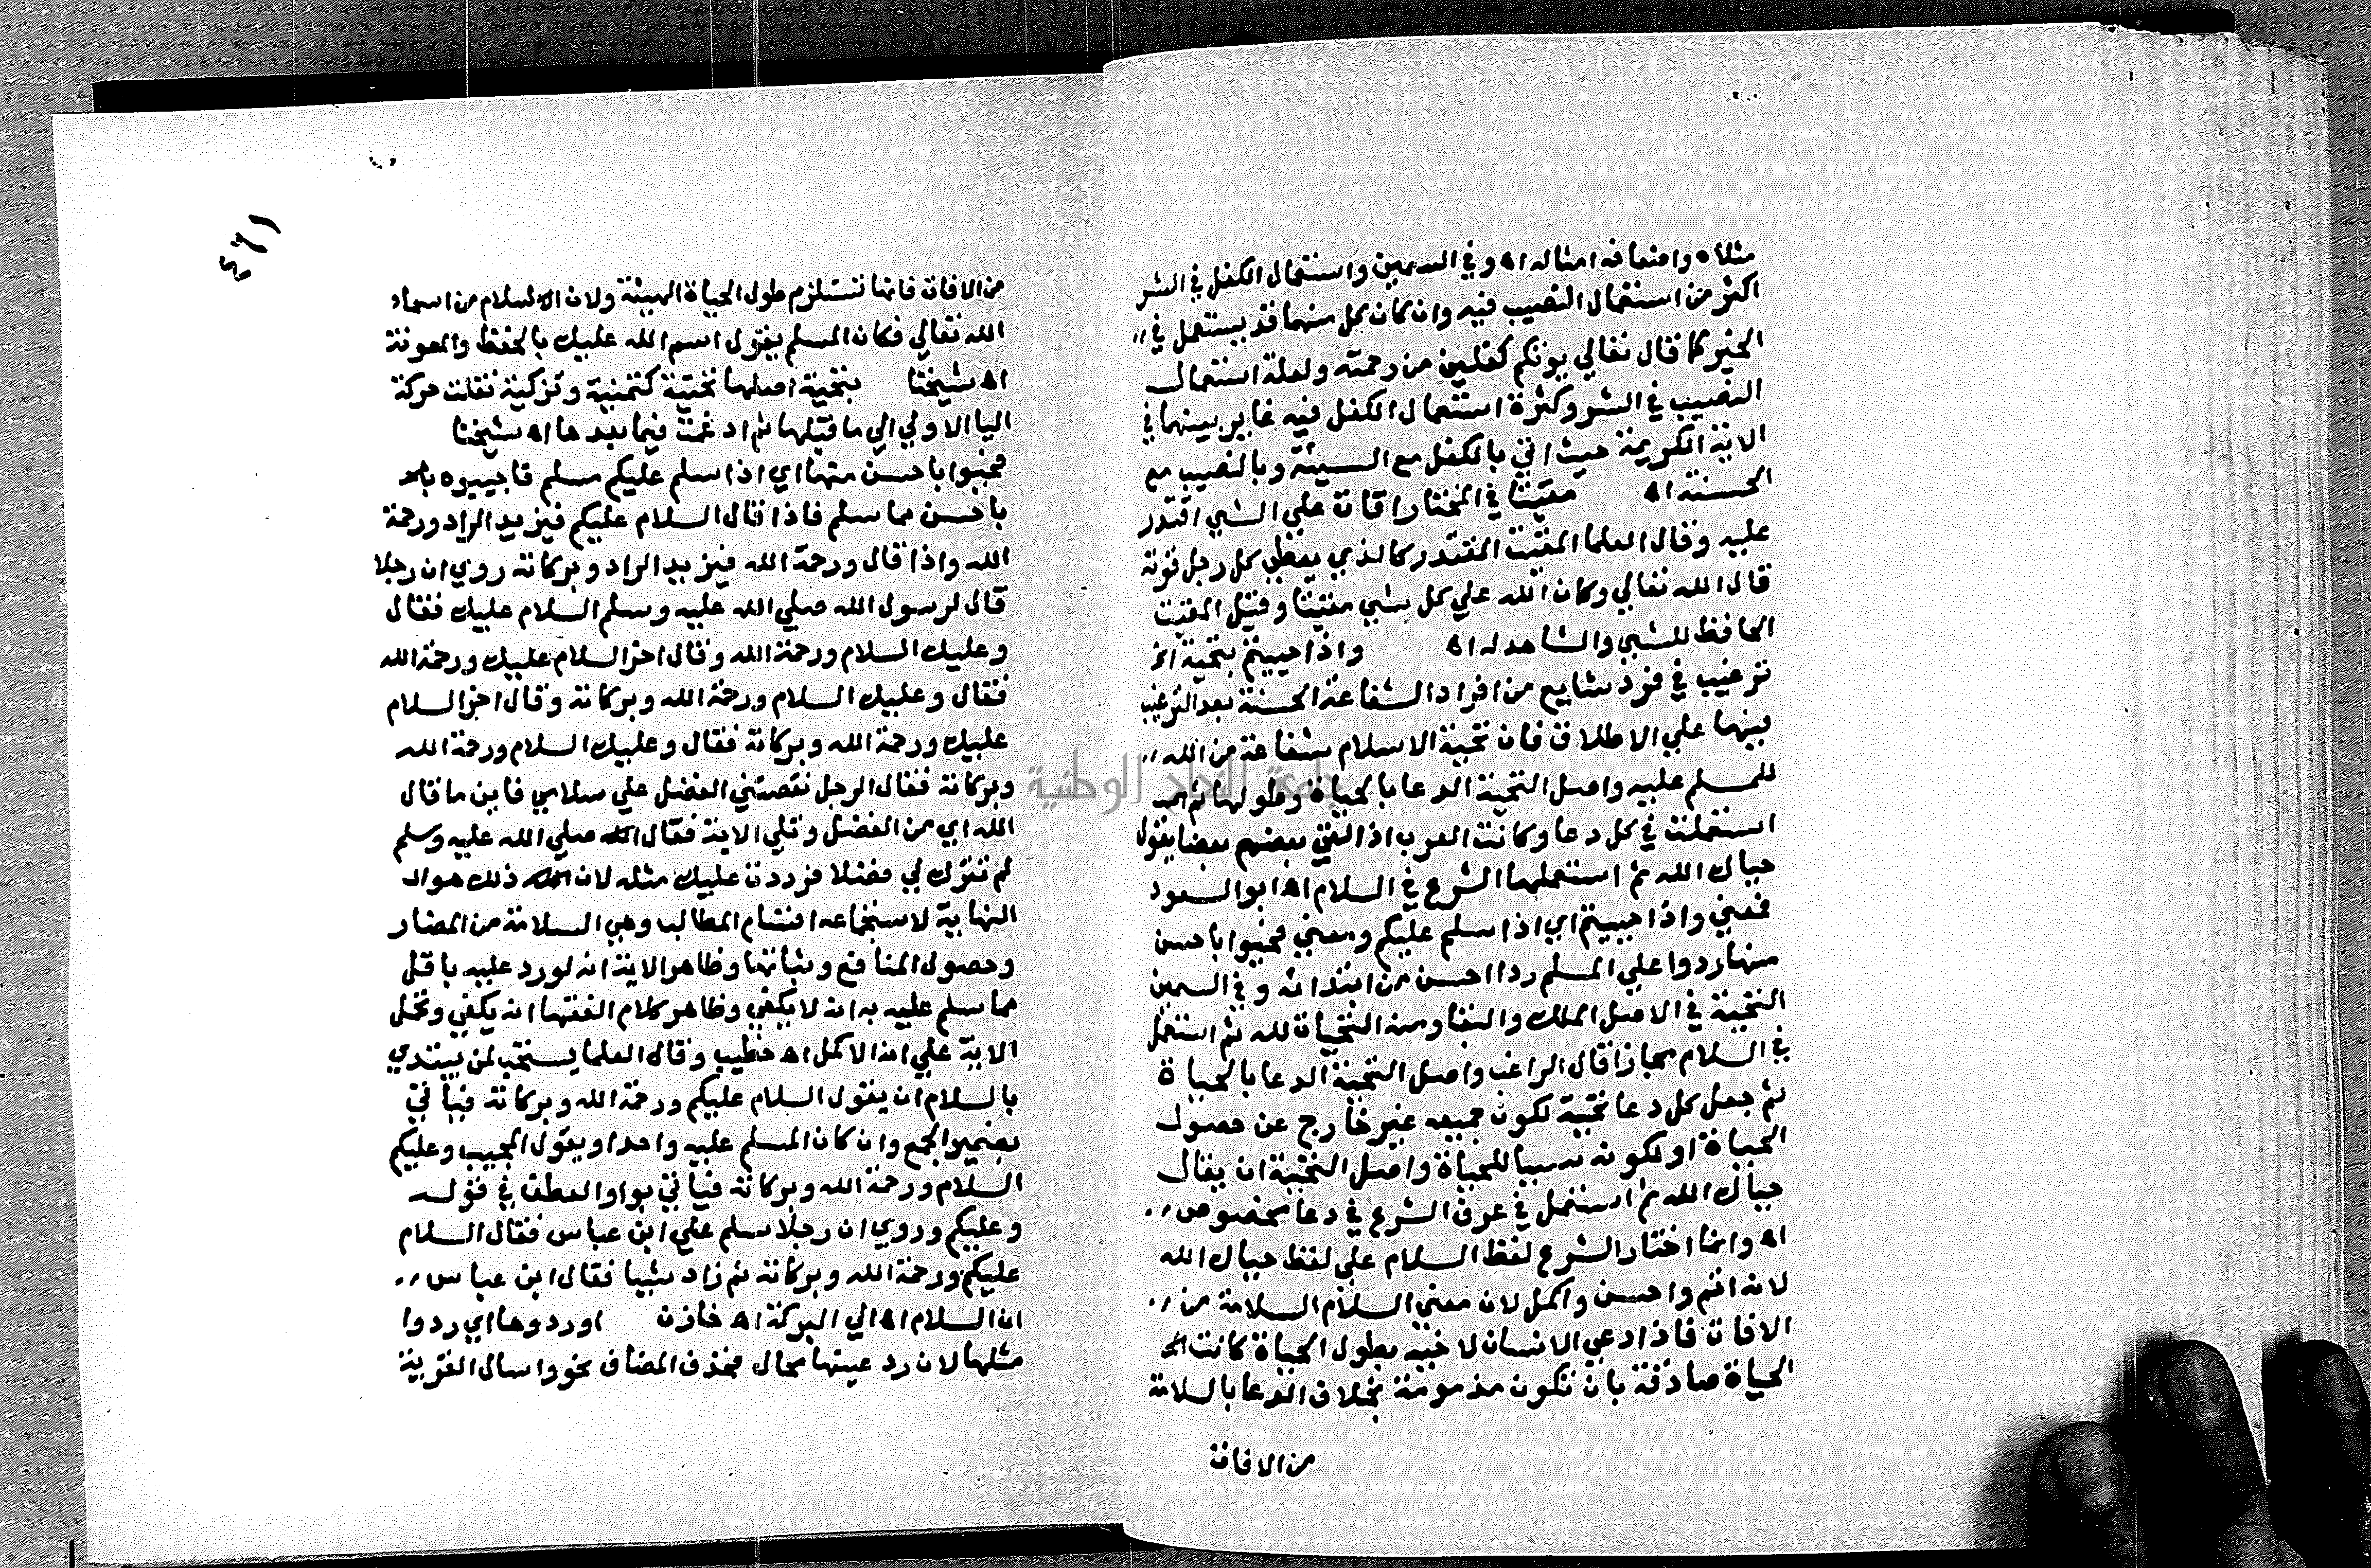 مثلاه واضعافه امثاله اه وفي السمين واستعمال الكفل في الشر
اكثر من استعمال النصيب فيه وان كان كل منهما قد يستعمل في
الخير كما قال تعالي يوتكم كفلين من رحمته ولعلة استعمال
النصيب في الشر وكثرة استعمال الكفل فيه غاير بينهما في
الاية الكريمة حيث اتي بالكفل مع السيئة وبالنصيب مع
الحسنة اه مقيتا في المختار اقات علي الشي اقتدر
عليه وقال العلما المقيت المقتدر كالذي يعطي كل رجل قوته
قال الله تعالي وكان الله علي كل شي مقيتا وقيل المقيت
الحافظ للشي والشاهد له اه واذا حييتم بتحية الخ
ترغيب في فرد شايع من افراد الشفاعة الحسنة بعد الترغيب
فيها علي الاطلاق فان تحية الاسلام شفاعة من الله
للمسلم عليه واصل التحية الدعا بالحياة وطولها ثم
استعملت في كل دعا وكانت العرب اذا لقي بعضهم بعضا يقول
حياك الله ثم استعملها الشرع في السلام اه ابو السعود
فمعني واذا حييتم اي اذا سلم عليكم ومعني فحيوا باحسن
منها ردوا علي المسلم ردا احسن من ابتدائه وفي السمين
التحية في الاصل الملك والبقا ومنه التحيات لله ثم استعمل
في السلام مجازا قال الراغب واصل التحية الدعا بالحياة
ثم جعل كل دعا تحية لكون جميعه غير خارج عن حصول
الحياة او لكونه سببا للحياة واصل التحية ان يقال
حياك الله ثم استعمل في عرف الشرع في دعا مخصوص
اه وانما اختار الشرع لفظ السلام علي لفظ حياك الله
لانه اتم واحسن واكمل لان معني السلام السلامة من
الافات فاذا دعي الانسان لاخيه بطول الحياة كانت
الحياة صادقة بان تكون مذمومة بخلاف الدعا بالسلامة
من الافات
٤٦١
من الافات فانها تستلزم طول الحياة الهنيئة ولان السلام من اسماء
الله تعالي فكان المسلم يقول اسم الله عليك بالحفظ والمعونة
اه شيخنا بتحية اصلها تحيية كتنمية وتزكية نقلت حركة
اليا الاولي الي ما قبلها ثم ادغمت فيما بعدها اه شيخنا
فحيوا باحسن منها اي اذا سلم عليكم مسلم فاجيبوه
باحسن مما سلم فاذا قال السلام عليكم فيزيد الراد ورحمة
الله واذا قال ورحمة الله فيزيد الراد وبركاته روي ان رجلا
قال لرسول الله صلي الله عليه وسلم السلام عليك فقال
وعليك السلام ورحمة الله وقال اخر السلام عليك ورحمة الله
فقال وعليك السلام ورحمة الله وبركاته وقال اخر السلام
عليك ورحمة الله وبركاته فقال وعليك السلام ورحمة الله
وبركاته فقال الرجل نقصتني الفضل علي سلامي فاين ما قال
الله اي من الفضل وتلي الاية فقال صلي الله عليه وسلم
لم تترك لي فضلا فرددت عليك مثله لان ذلك هو
النهاية لاستجماعه اقسام المطالب وهي السلامة من المضار
وحصول المنافع وثباتها وظاهر الاية انه لو رد عليه باقل
مما سلم عليه به انه لا يكفي وظاهر كلام الفقها انه يكفي وتحمل
الاية علي انه الاكمل اه خطيب وقال العلما يستحب لمن يبتدي
بالسلام ان يقول السلام عليكم ورحمة الله وبركاته فياتي
بضمير الجمع وان كان المسلم عليه واحدا ويقول المجيب وعليكم
السلام ورحمة الله وبركاته فياتي بواو العطف في قوله
وعليكم وروي ان رجلا سلم علي ابن عباس فقال السلام
عليكم ورحمة الله وبركاته ثم زاد شيا فقال ابن عباس
ان السلام اه الي البركة اه خازن اوردوها اي ردوا
مثلها لان رد عينها محال فحذف المضاف نحو واسال القرية
جامعة النجاح الوطنية